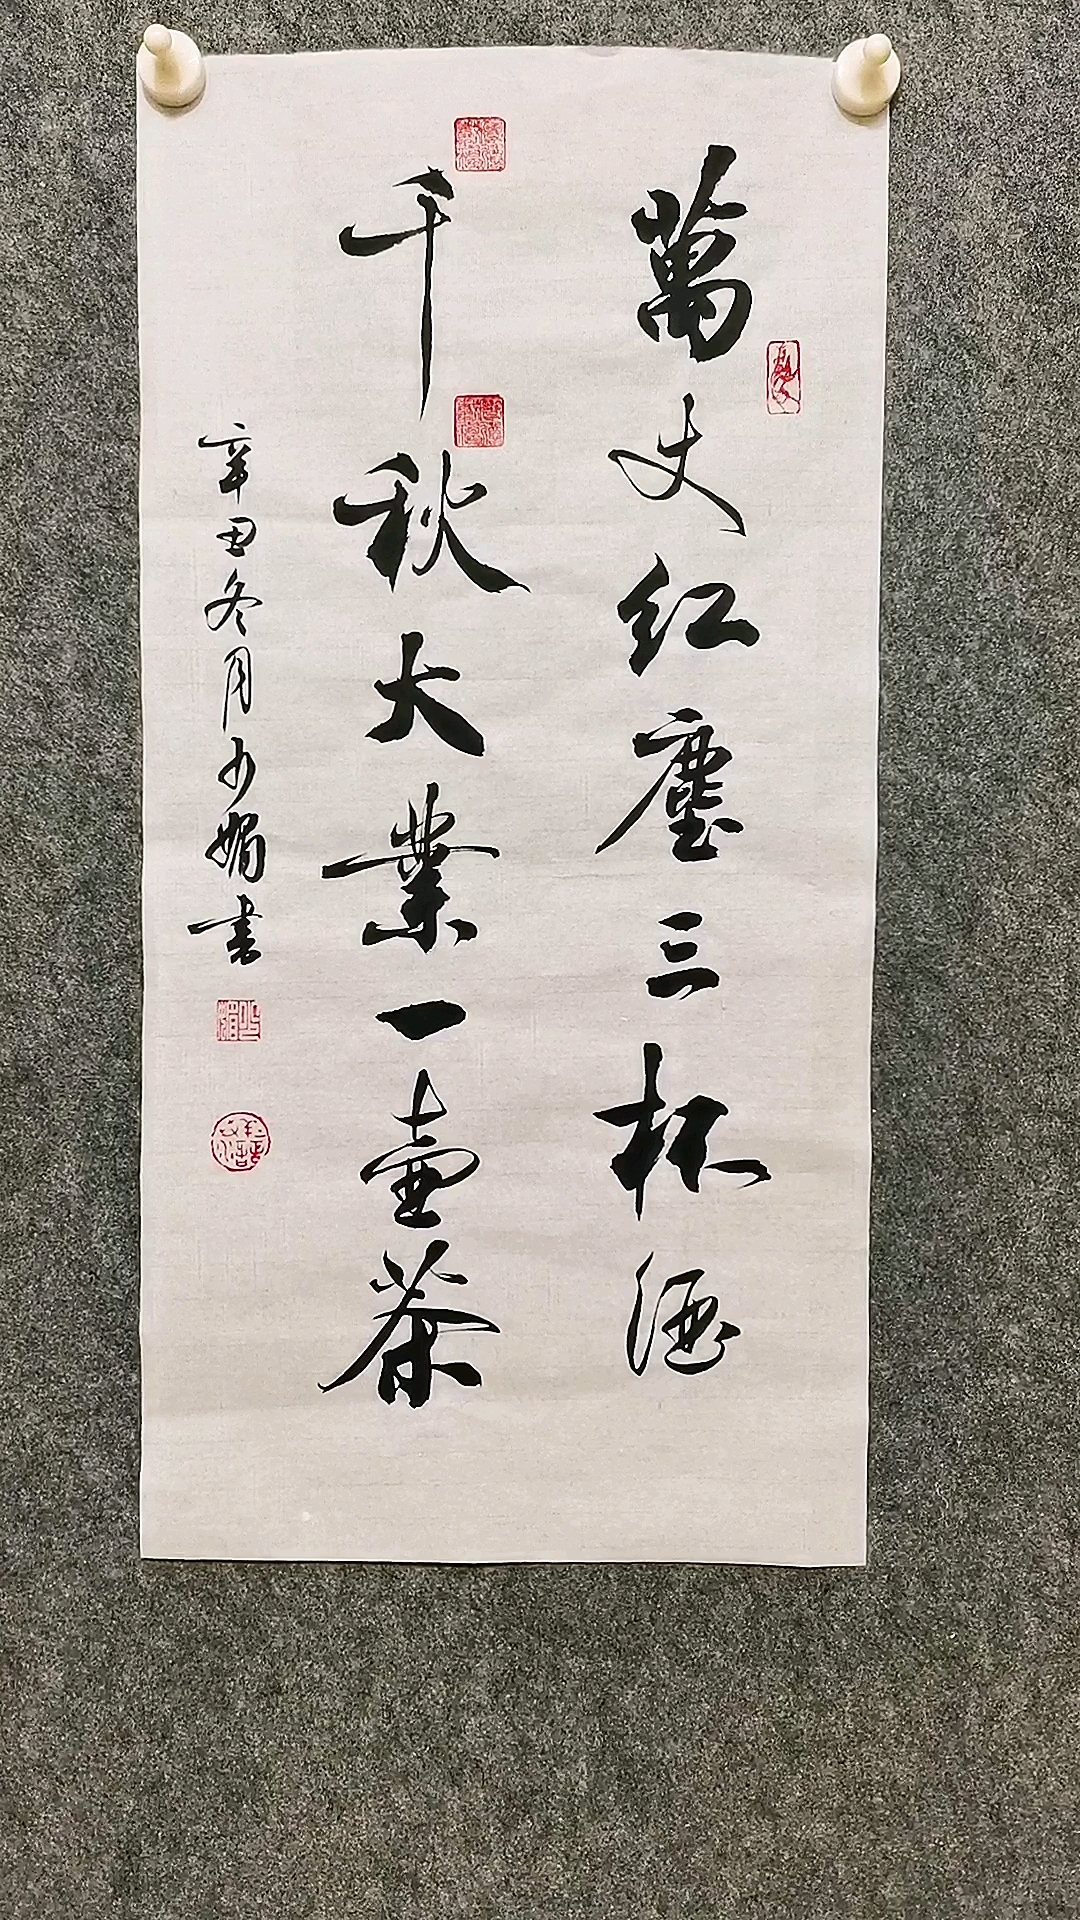 萬丈红塵三杯酒
千秋大業一壶茶
辛丑冬月少媚書